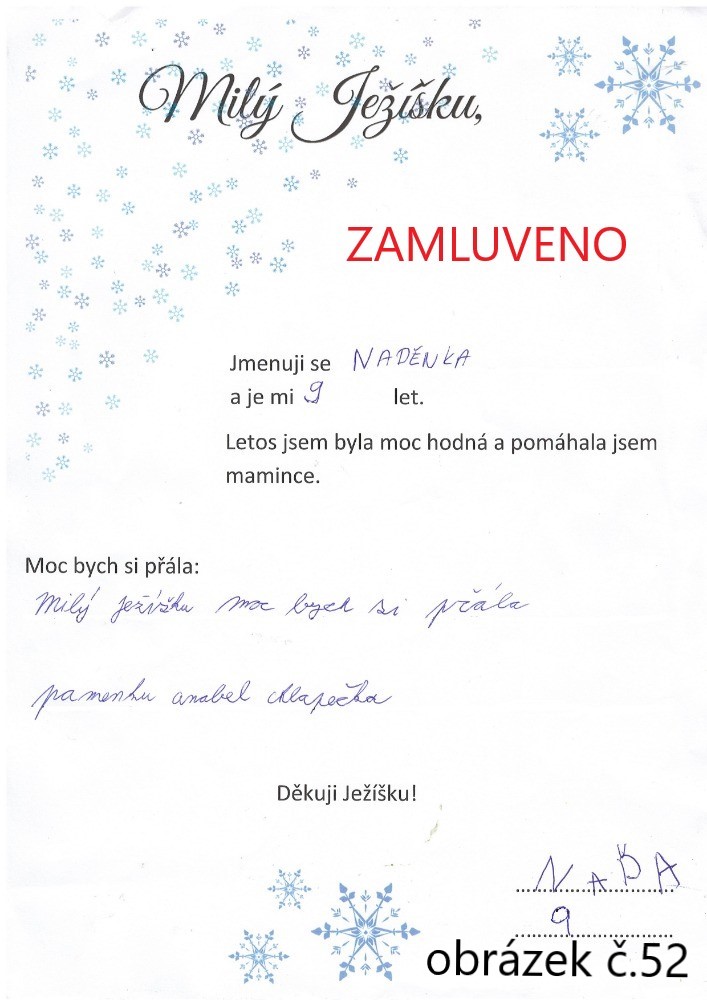 Milý Ježíšku,
ZAMLUVENO
Jmenuji se NADĚNKA
a je mi 9 let.
Letos jsem byla moc hodná a pomáhala jsem
mamince.
Moc bych si přála:
Milý Ježížku moc bych si přála
pamenku anabel chlapečka
Děkuji Ježíšku!
NAĎA
9
obrázek č.52